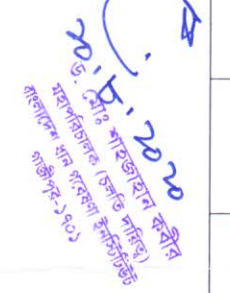 ২০.৮.২০২০
ড. মোঃ শাহজাহান কবীর
মহাপরিচালক (চলতি দায়িত্ব)
বাংলাদেশ ধান গবেষণা ইনস্টিটিউট
গাজীপুর-১৭০১